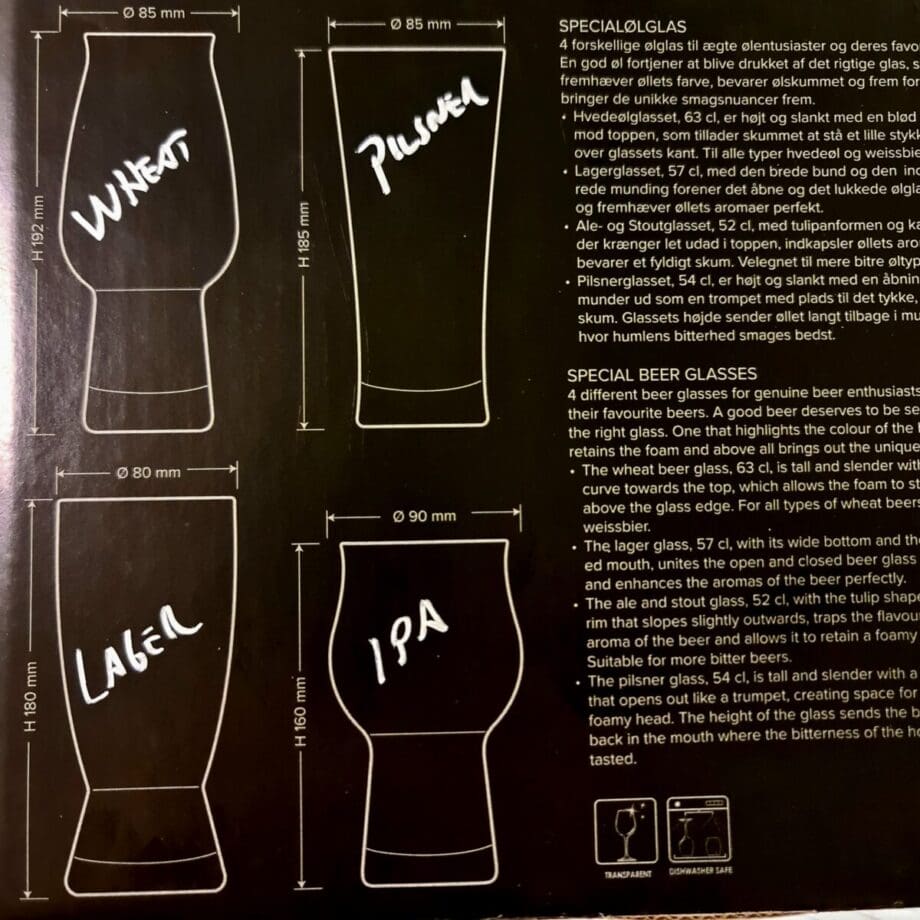 Ø 85 mm
H 192 mm
WHEAT
Ø 85 mm
H 185 mm
PILSNER
Ø 80 mm
H 180 mm
LAGER
Ø 90 mm
H 160 mm
IPA
SPECIALØLGLAS
4 forskellige ølglas til ægte ølentusiaster og deres favo
En god øl fortjener at blive drukket af det rigtige glas, s
fremhæver øllets farve, bevarer ølskummet og frem for
bringer de unikke smagsnuancer frem.
• Hvedeølglasset, 63 cl, er højt og slankt med en blød
mod toppen, som tillader skummet at stå et lille stykk
over glassets kant. Til alle typer hvedeøl og weissbie
• Lagerglasset, 57 cl, med den brede bund og den ind
rede munding forener det åbne og det lukkede ølgla
og fremhæver øllets aromaer perfekt.
• Ale- og Stoutglasset, 52 cl, med tulipanformen og ka
der krænger let udad i toppen, indkapsler øllets aro
bevarer et fyldigt skum. Velegnet til mere bitre øltyp
• Pilsnerglasset, 54 cl, er højt og slankt med en åbnin
munder ud som en trompet med plads til det tykke,
skum. Glassets højde sender øllet langt tilbage i mu
hvor humlens bitterhed smages bedst.
SPECIAL BEER GLASSES
4 different beer glasses for genuine beer enthusiasts
their favourite beers. A good beer deserves to be se
the right glass. One that highlights the colour of the
retains the foam and above all brings out the unique
• The wheat beer glass, 63 cl, is tall and slender with
curve towards the top, which allows the foam to st
above the glass edge. For all types of wheat beers
weissbier.
• The lager glass, 57 cl, with its wide bottom and the
ed mouth, unites the open and closed beer glass
and enhances the aromas of the beer perfectly.
• The ale and stout glass, 52 cl, with the tulip shape
rim that slopes slightly outwards, traps the flavou
aroma of the beer and allows it to retain a foamy
Suitable for more bitter beers.
• The pilsner glass, 54 cl, is tall and slender with a
that opens out like a trumpet, creating space for
foamy head. The height of the glass sends the b
back in the mouth where the bitterness of the ho
tasted.
TRANSPARENT
DISHWASHER SAFE